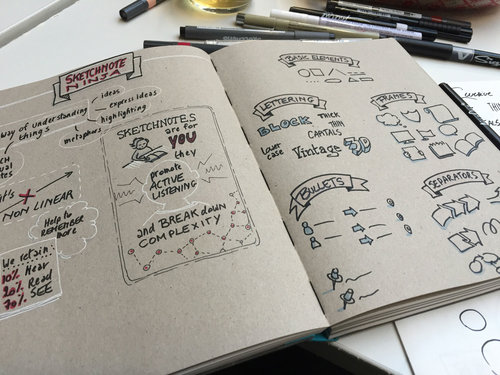 SKETCHNOTE
NINJA
way of understanding
things
ideas
express ideas
highlighting
metaphors
NON LINEAR
Help for
REMEMBER
more
We retain
10% Hear
20% Read
70% SEE
SKETCHNOTES
are for
YOU
they
promote
ACTIVE
LISTENING
and BREAK down
COMPLEXITY
BASIC ELEMENTS
LETTERING
BLOCK
THICK
THIN
CAPITALS
Lower
case
Vintage
3D
FRAMES
BULLETS
SEPARATORS